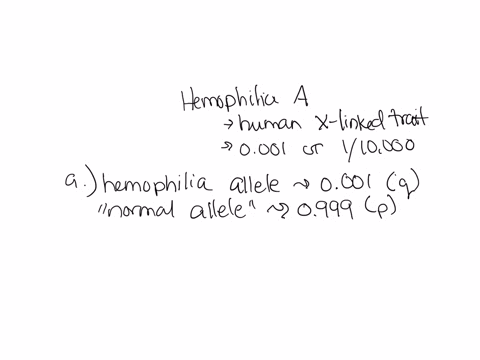 Hemophilia A
→ human X-linked trait
→ 0.001 or 1/10,000
a.) hemophilia allele ⇝ 0.001 (q)
"normal allele" ⇝ 0.999 (p)